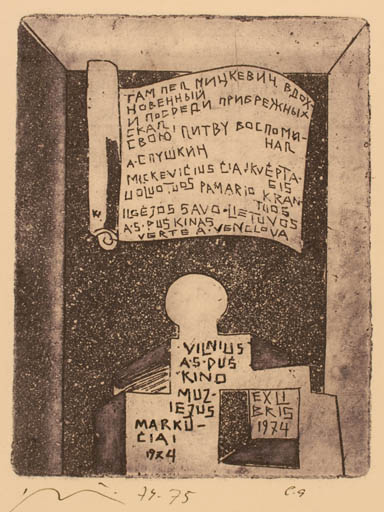 ТАМ ПЕЛ МИЦКЕВИЧ ВДОХ-
НОВЕННЫЙ
И ПОСРЕДИ ПРИБРЕЖНЫХ
СКАЛ
СВОЮ ЛИТВУ ВОСПОМИ-
НАЛ
А·СПУШКИН
MICKEVIČIUS ČIA ĮKVĖPTA-
SIS
UOLUOTUOS PAMARIO KRAN-
TUOS
ILGĖJOS SAVO LIETUVOS
A·S·PUŠKINAS
VERTĖ A·VENCLOVA
·VILNIUS
A·S·PUŠ
KINO
MUZ-
IEJUS
MARKU-
ČIAI
1974
EXLI
BRIS
1974
74-75